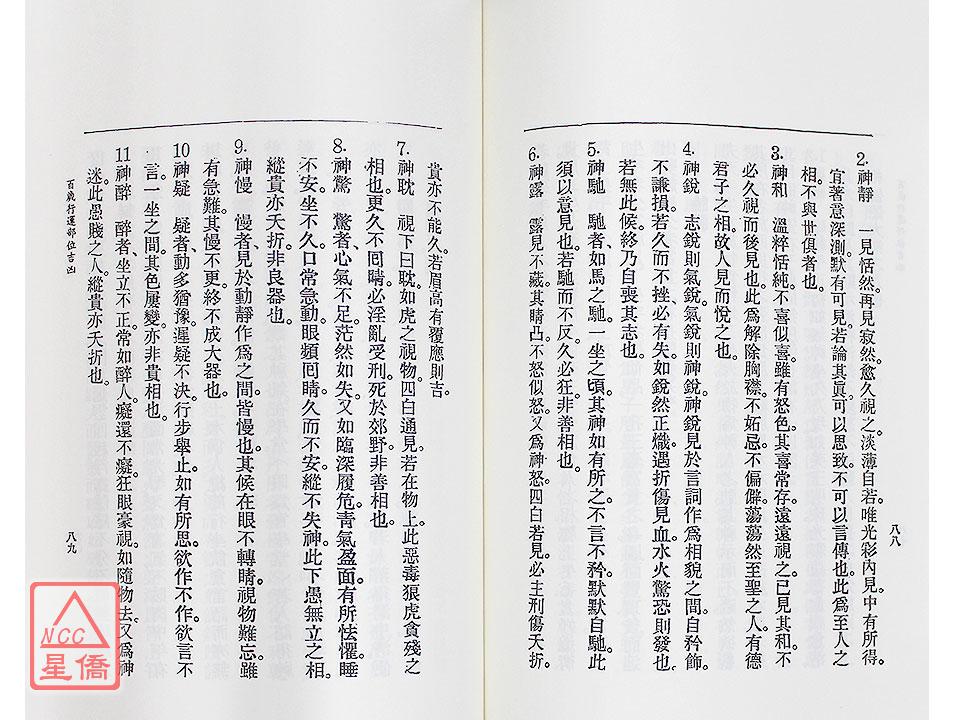 2. 神靜　一見恬然。再見寂然。愈久視之。淡薄自若。唯光彩內見。中有所得。
宜著意深測。默有可見。若論其眞。可以思致。不可以言傳也。此爲至人之
相。不與世俱者也。
3. 神和　溫粹恬純。不喜似喜。雖有怒色。其喜常存。遠遠視之。已見其和。不
必久視而後見也。此爲解除胸襟。不妬忌。不偏僻。蕩蕩然至聖之人。有德
君子之相。故人見而悅之也。
4. 神銳　志銳則氣銳。氣銳則神銳。神銳見於言詞作爲相貌之間。自矜飾。
不謙損。若久而不挫。必有失。如銳然正熾。遇折傷見血。水火驚恐則發也。
若無此候。終乃自喪其志也。
5. 神馳　馳者、如馬之馳。一坐之頃。其神如有所之。不言不矜。默默自馳。此
須以意見也。若馳而不反。久必狂。非善相也。
6. 神露　露見不藏。其睛凸。不怒似怒。又爲神怒。四白若見。必主刑傷夭折。
八八
貴亦不能久。若眉高有覆應則吉。
7. 神耽　視下曰耽。如虎之視物。四白通見。若在物上。此惡毒狼虎貪殘之
相也。更久不囘睛。必淫亂受刑。死於郊野。非善相也。
8. 神驚　驚者、心氣不足。茫然如失。又如臨深履危。靑氣盈面。有所怯懼。睡
不安。坐不久。口常急動。眼頻囘睛。久而不安。縱不失神。此下愚無立之相。
縱貴亦夭折。非良器也。
9. 神慢　慢者、見於動靜作爲之間。皆慢也。其候在眼不轉睛。視物難忘。雖
有急難。其慢不更。終不成大器也。
10 神疑　疑者、動多猶豫。遲疑不決。行步舉止。如有所思。欲作不作。欲言不
言。一坐之間。其色屢變。亦非貴相也。
11 神醉　醉者、坐立不正。常如醉人。癡還不癡。狂眼豪視。如隨物去。又爲神
迷。此愚賤之人。縱貴亦夭折也。
百歲行運部位吉凶
八九
NCC
星僑